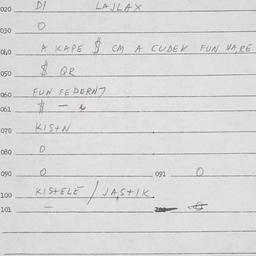 020 DI LAJLAX
030 O
040 A KAPE $ CM A CUDEK FUN HARE
050 $ QR
060 FUN FEDERN7
061 $ -
070 KISTN
080 O
090 O 091 O
100 KISTELE / JASTIK
101 -